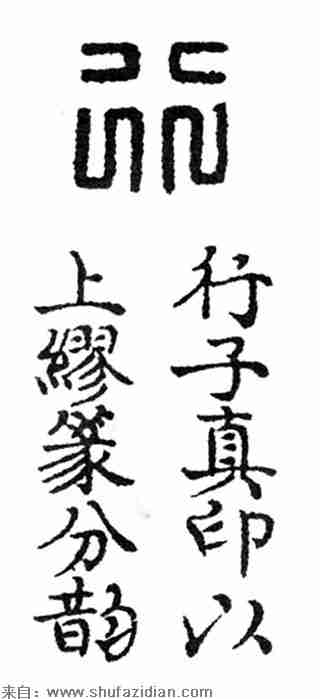 行
行子真印以
上繆篆分韵
来自：www.shufazidian.com